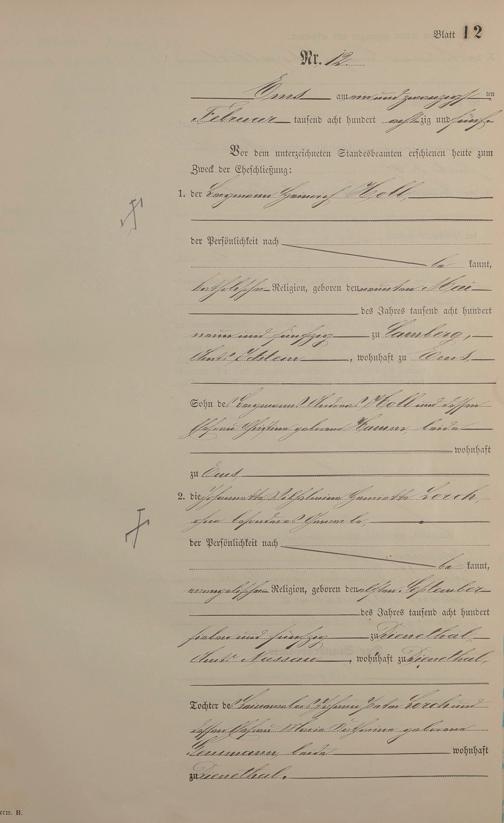 Blatt 12
Nr. 12.
Ems am ein und zwanzigsten
Februar tausend acht hundert achtzig und fünf
Vor dem unterzeichneten Standesbeamten erschienen heute zum
Zweck der Eheschließung:
1. der Bergmann Heinrich Holl
der Persönlichkeit nach
be kannt,
katholischer Religion, geboren den neunten Mai
des Jahres tausend acht hundert
neun und fünfzig zu Camberg,
Amts Idstein, wohnhaft zu Ems
Sohn des Bergmanns Holl und dessen
Ehefrau Christine geborene beide
wohnhaft
zu Ems
2. die Wilhelmine Henriette Lorch,
ohne besonderes Gewerbe,
der Persönlichkeit nach
be kannt,
evangelischer Religion, geboren den elften September
des Jahres tausend acht hundert
sieben und fünfzig zu Dienethal
Amts Nassau, wohnhaft zu Dienethal,
Tochter des Johann Peter Lorch und
dessen Ehefrau Maria Katharina geborene
beide wohnhaft
zu Dienethal.